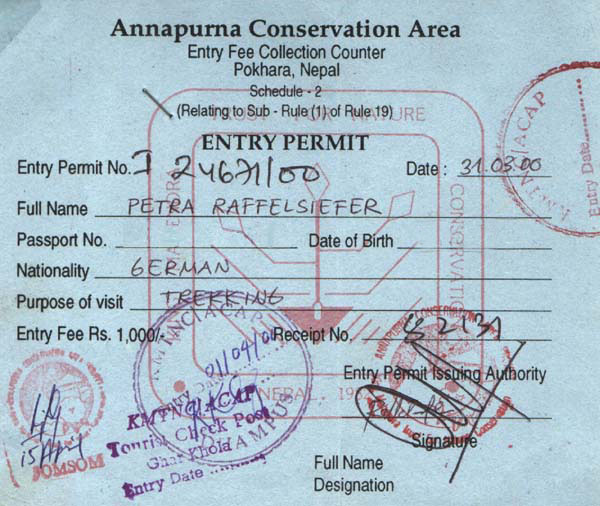 Annapurna Conservation Area
Entry Fee Collection Counter
Pokhara, Nepal
Schedule - 2
(Relating to Sub - Rule (1) of Rule 19)
FOR NATURE
CONSERVATION
ENTRY PERMIT
Entry Permit No. I 24671/00 Date : 31.03.00
Full Name PETRA RAFFELSIEFER
Passport No. Date of Birth
Nationality GERMAN
Purpose of visit TREKKING
Entry Fee Rs. 1,000/- Receipt No.
Entry Permit Issuing Authority
Signature
Full Name
Designation
KMTNC/ACAP
Entry Date
01/04/00
KMTNC/ACAP
Tourist Check Post
Ghar Khola
Entry Date
15 April
JOMSOM